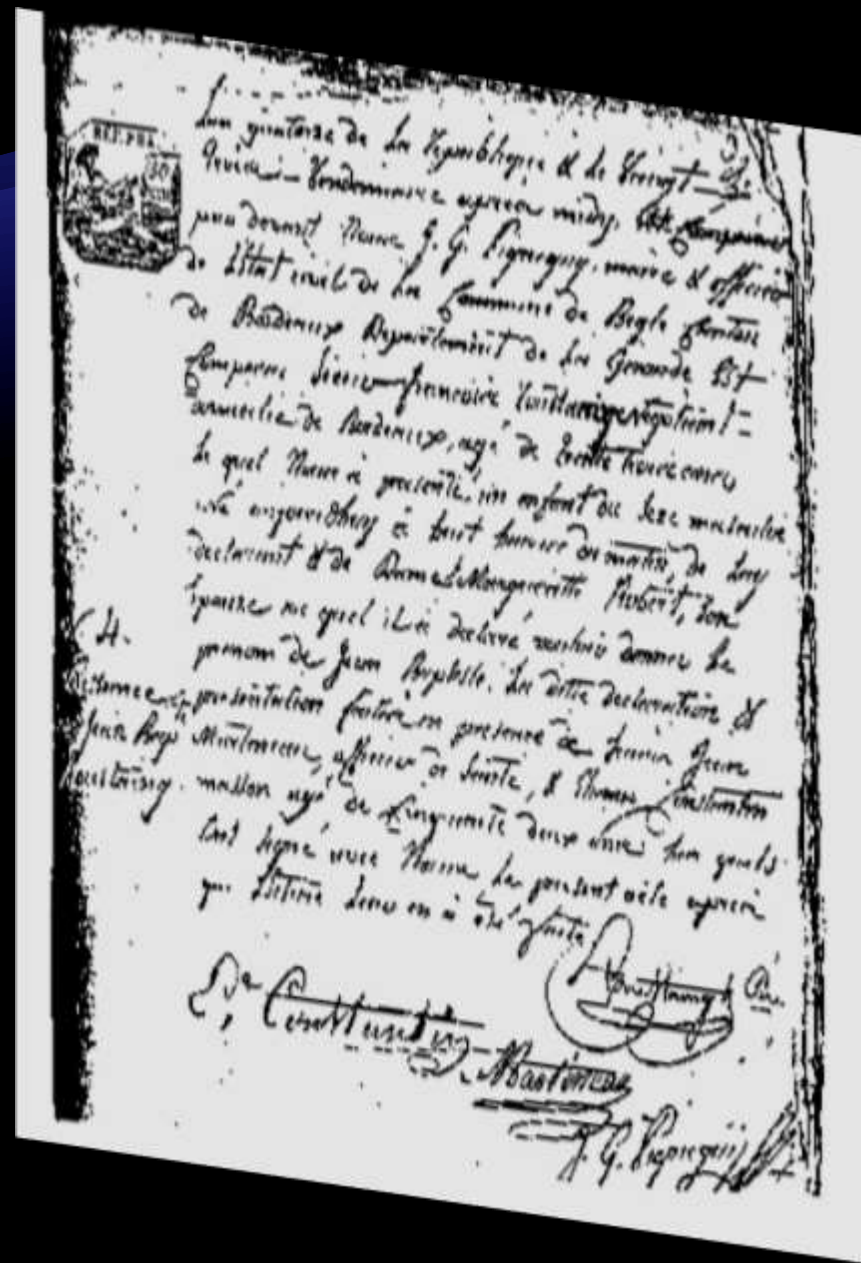 REP. FRA.
L'an quatorze de La Republique & le Vingt
Vendemiaire apres midy,
par devant Nous J. G. Pigneguy, maire & officier
de L'Etat civil de La Commune de Begle Canton
de Bordeaux Departement de La Gironde Est
Comparu francois Coustaing negotiant
domicilié de Bordeaux, agé de trente ans
Le quel Nous a presenté, un enfant du sexe masculin
Né aujourdhuy à huit heures du matin, de Luy
declarant & de Dame Marguerite Robert, son
Epouse au quel il a declaré vouloir donner Le
prenom de Jean Baptiste. La dite declaration &
presentation faite en presence de Jean
Martineau, officier de Santé, & Constantin
masson agé de Cinquante deux ans Les quels
Ont signé avec Nous Le present acte apres
que Lecture Leur en a été faite
4.
Jean Bap
Coustaing.
Constantin
Coustaing
Martineau
J. G. Pigneguy